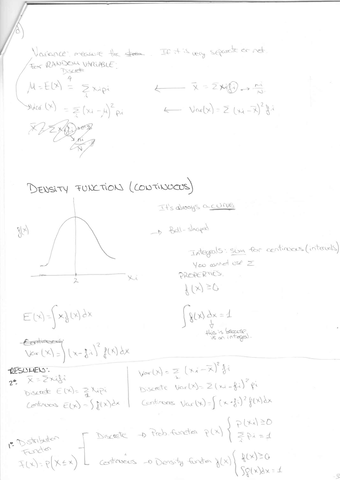 Variance: measure for . If it is very separate or not.
For RANDOM VARIABLE:
Discrete
μ = E(X) = Σ xi pi ← x̄ = Σ xi fi →
Var(X) = Σ (xi - μ)² pi ← Var(x) = Σ (xi - x̄)² fi
DENSITY FUNCTION (CONTINUOUS)
It's always a curve
f(x)
→ Bell-shaped
Integrals: sum for continuous (intervals)
You cannot use Σ
xi
PROPERTIES:
f(x) ≥ 0
E(x) = ∫ x f(x) dx
∫ f(x) dx = 1
this is because
is an integral.
Continuous
Var(x) = ∫ (x - μ)² f(x) dx
RESUMEN:
2º x̄ = Σ xi fi
Var(x) = Σ (xi - x̄)² fi
Discrete E(x) = Σ xi pi
Discrete Var(x) = Σ (xi - μ)² pi
Continuous E(x) = ∫ f(x) dx
Continuous Var(x) = ∫ (x - μ)² f(x) dx
1º Distribution
Function
F(x) = P(X ≤ x)
Discrete → Prob. function p(x) { p(xi) ≥ 0
Σ pi = 1
Continuous → Density function f(x) { f(x) ≥ 0
∫ f(x) dx = 1